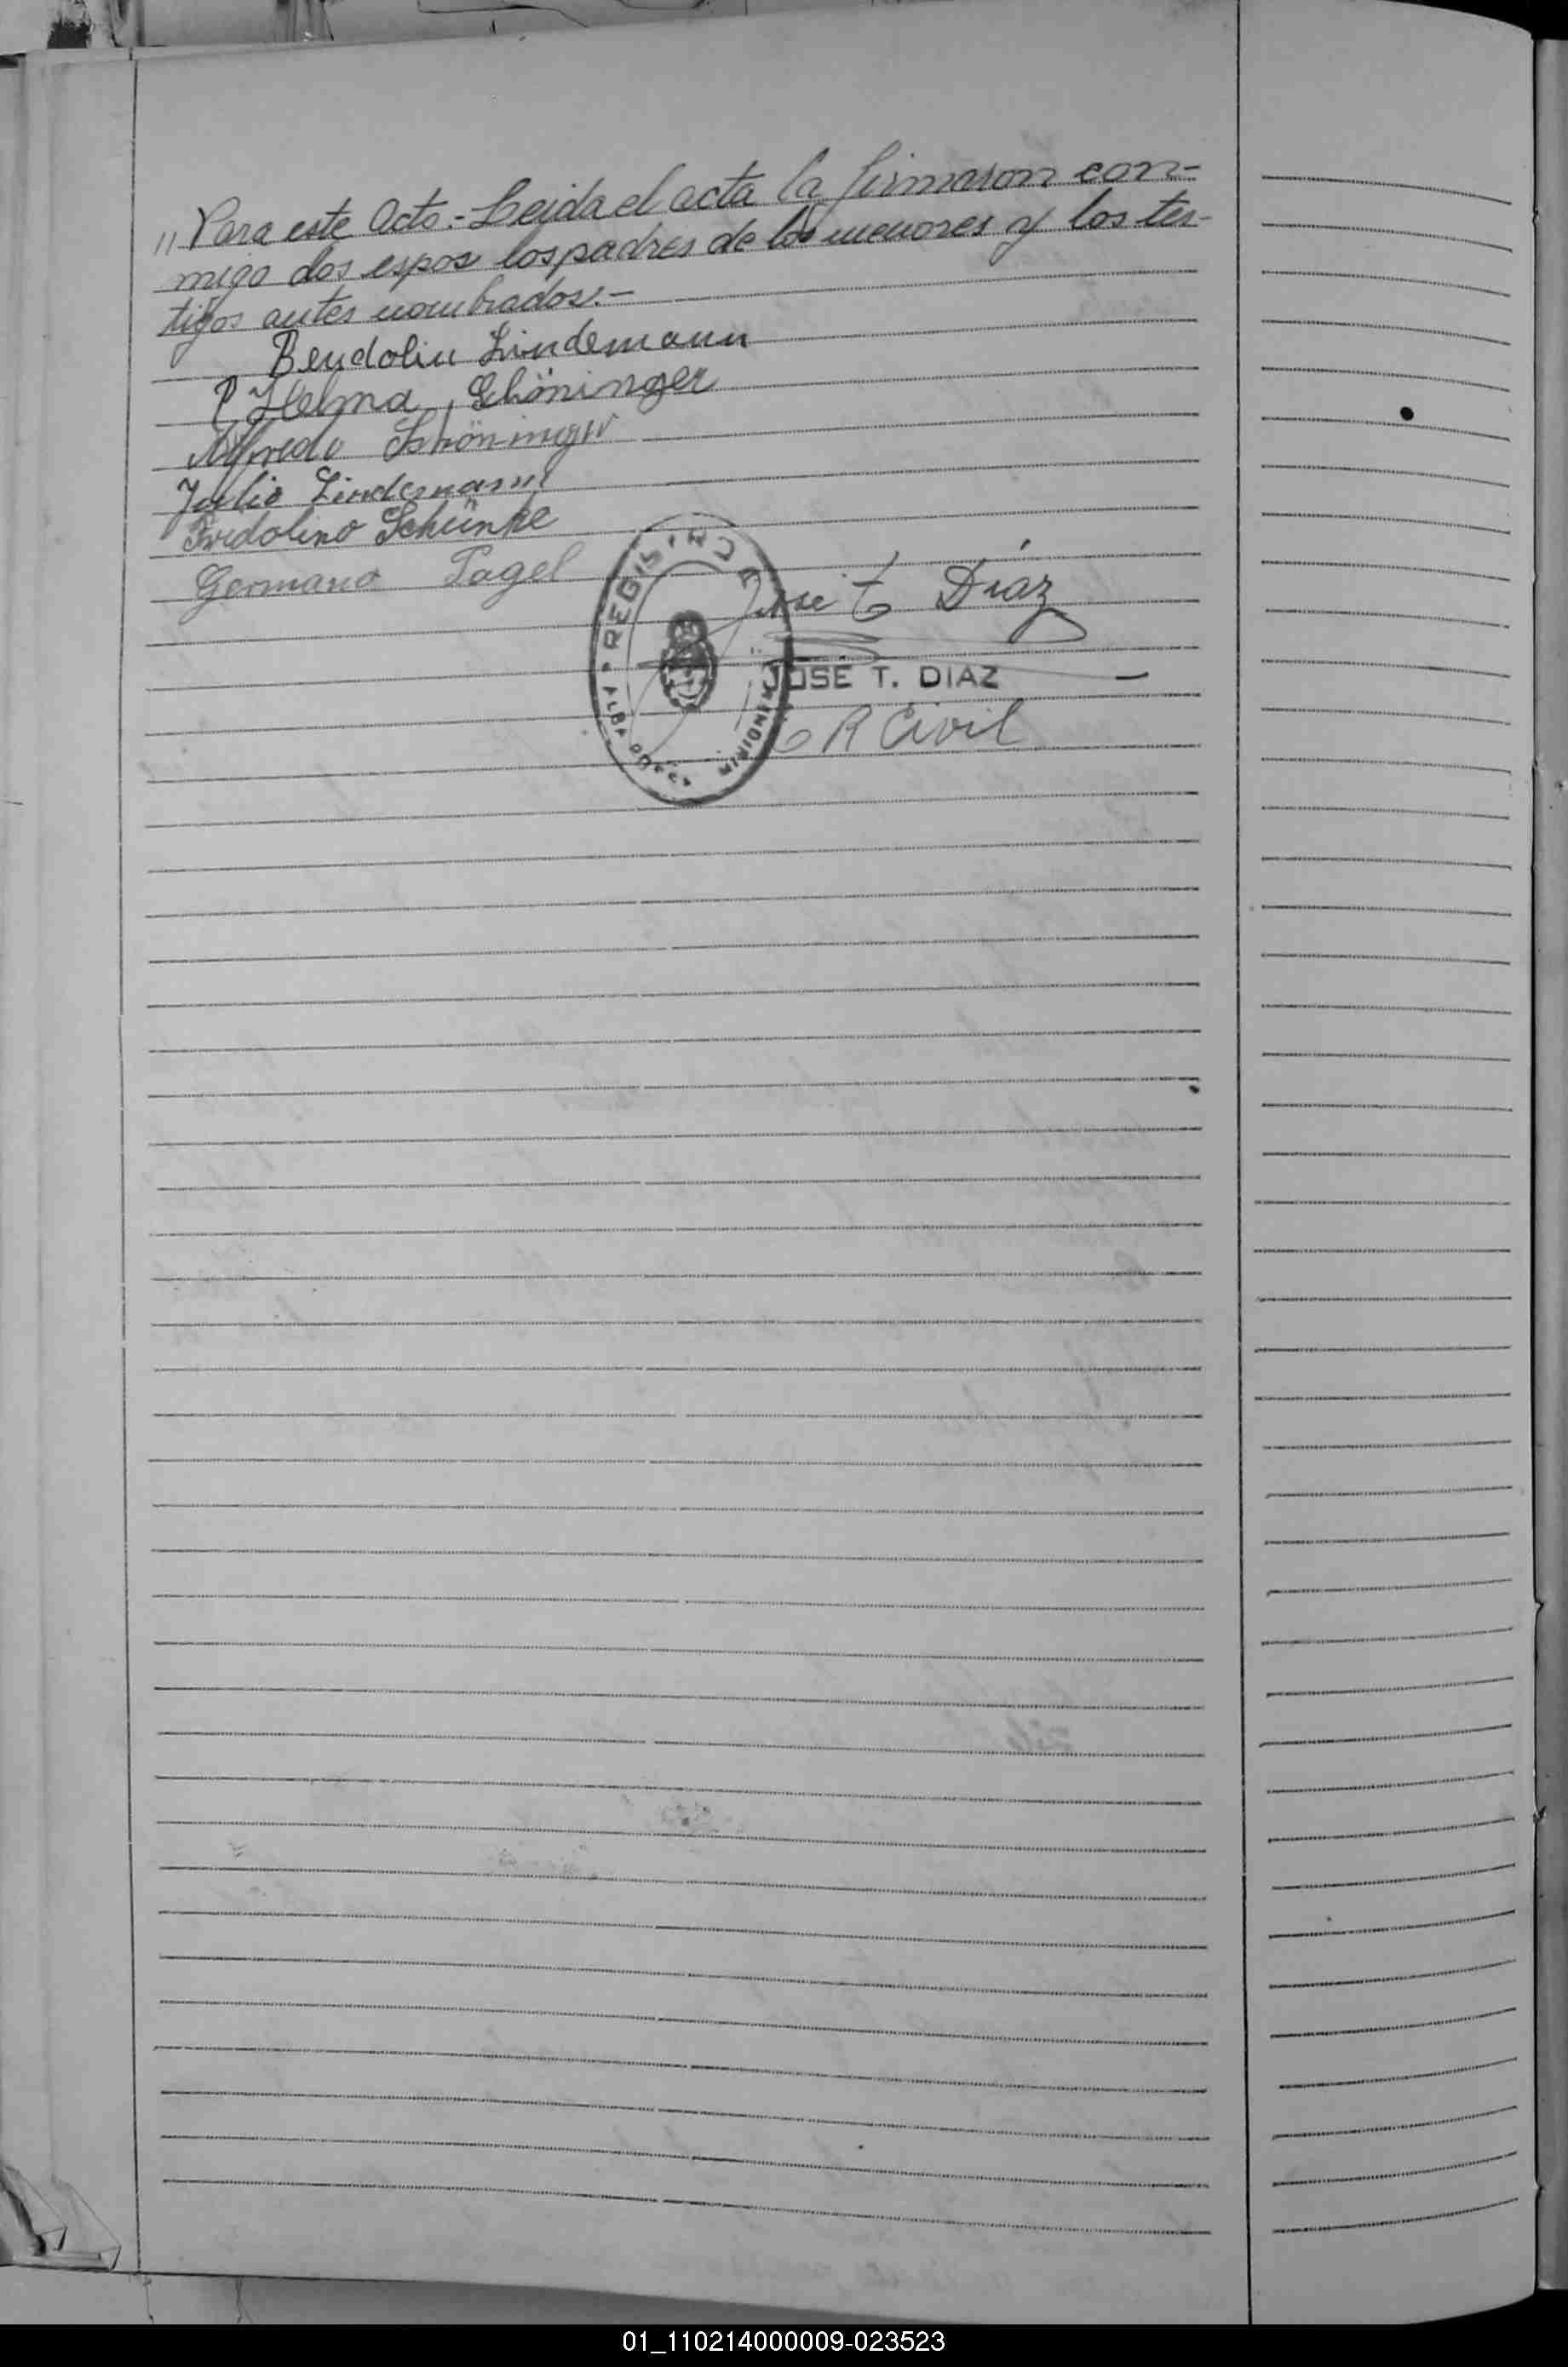 "Para este Acto.- Leida el acta la firmaron con-
migo dos espos los padres de los menores y los tes-
tigos antes nombrados.-
Bendolin Lindemann
Helma Schöninger
Alfredo Schöninger
Julio Lindemann
Fridolino Schünke
Germano Pagel
REGISTRO
Jose T Díaz
JOSE T. DIAZ
ALBA POSSE MISIONES
R Civil
01_110214000009-023523